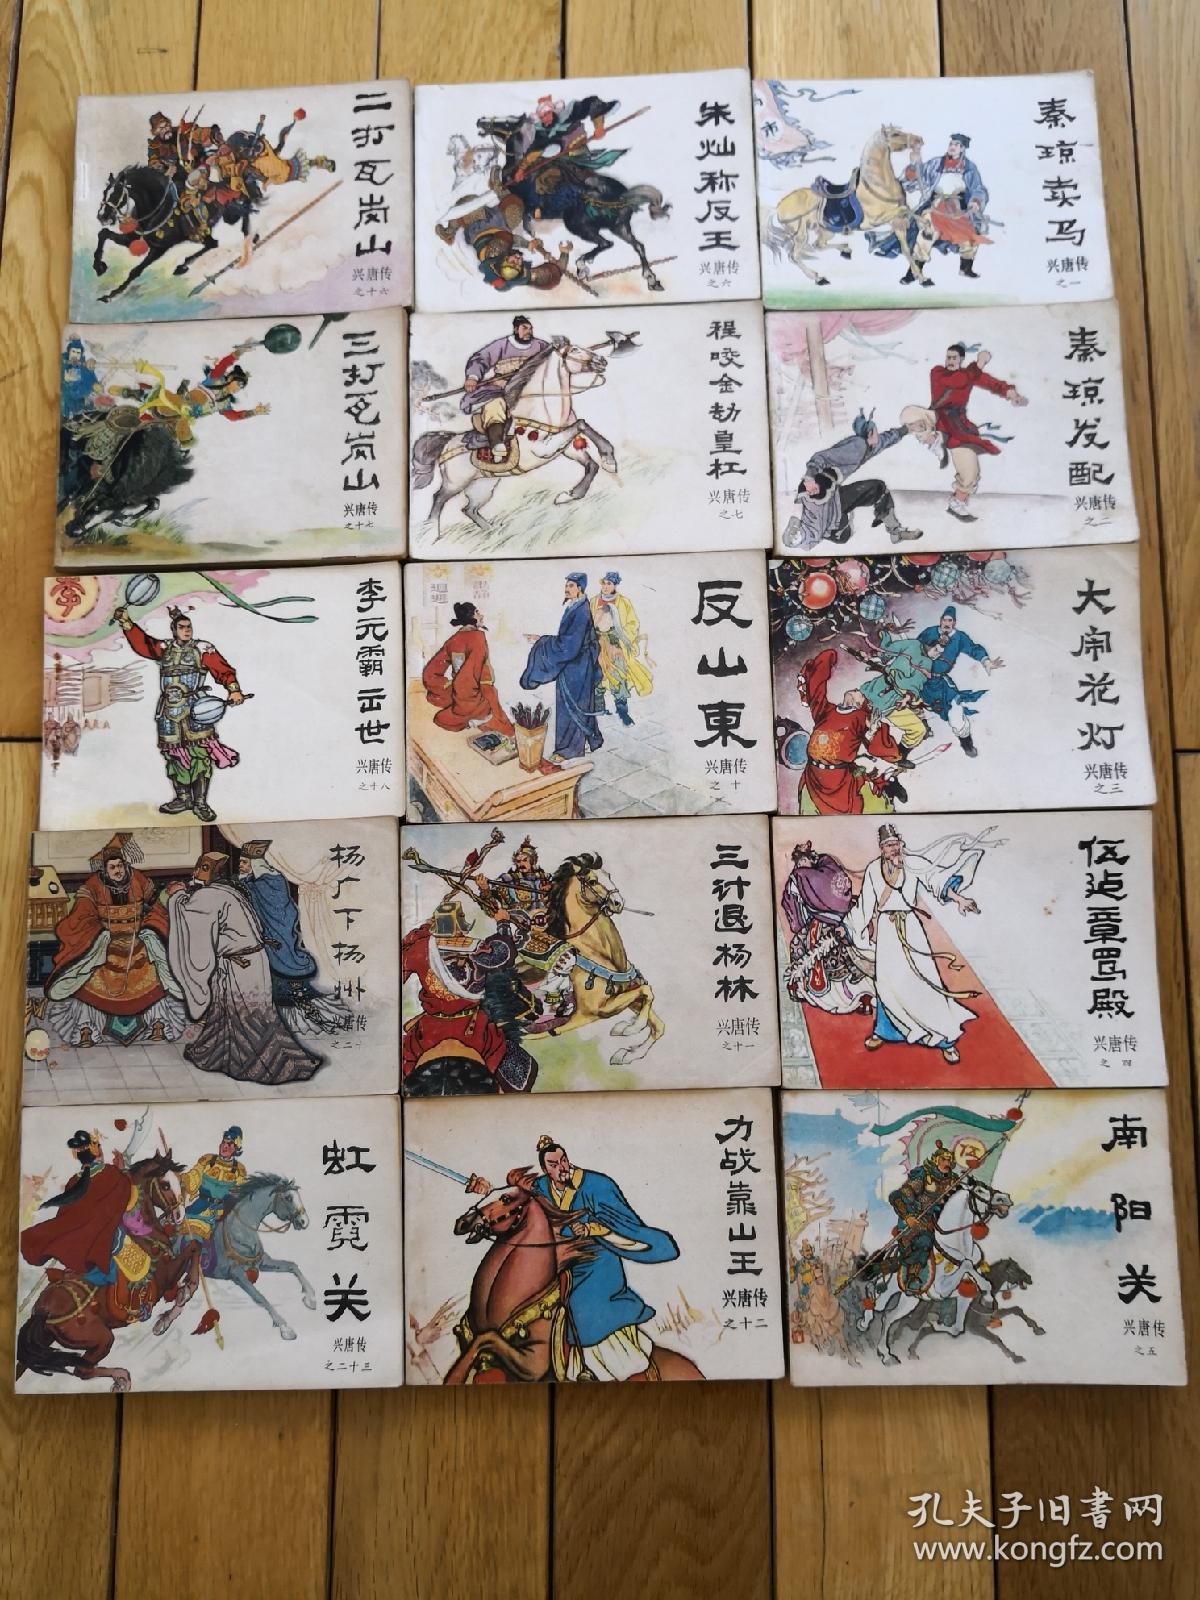 二打瓦岗山
兴唐传
之十六
朱灿称反王
兴唐传
之六
市
秦琼卖马
兴唐传
之一
三打瓦岗山
兴唐传
之十七
程咬金劫皇杠
兴唐传
之七
秦琼发配
兴唐传
之二
李
李元霸出世
兴唐传
之十八
迴避
反山東
兴唐传
之十
大闹花灯
兴唐传
之三
杨广下扬州
兴唐传
之二十
三计退杨林
兴唐传
之十一
伍建章骂殿
兴唐传
之四
虹霓关
兴唐传
之二十三
力战靠山王
兴唐传
之十二
伍
南阳关
兴唐传
之五
孔夫子旧书网
www.kongfz.com